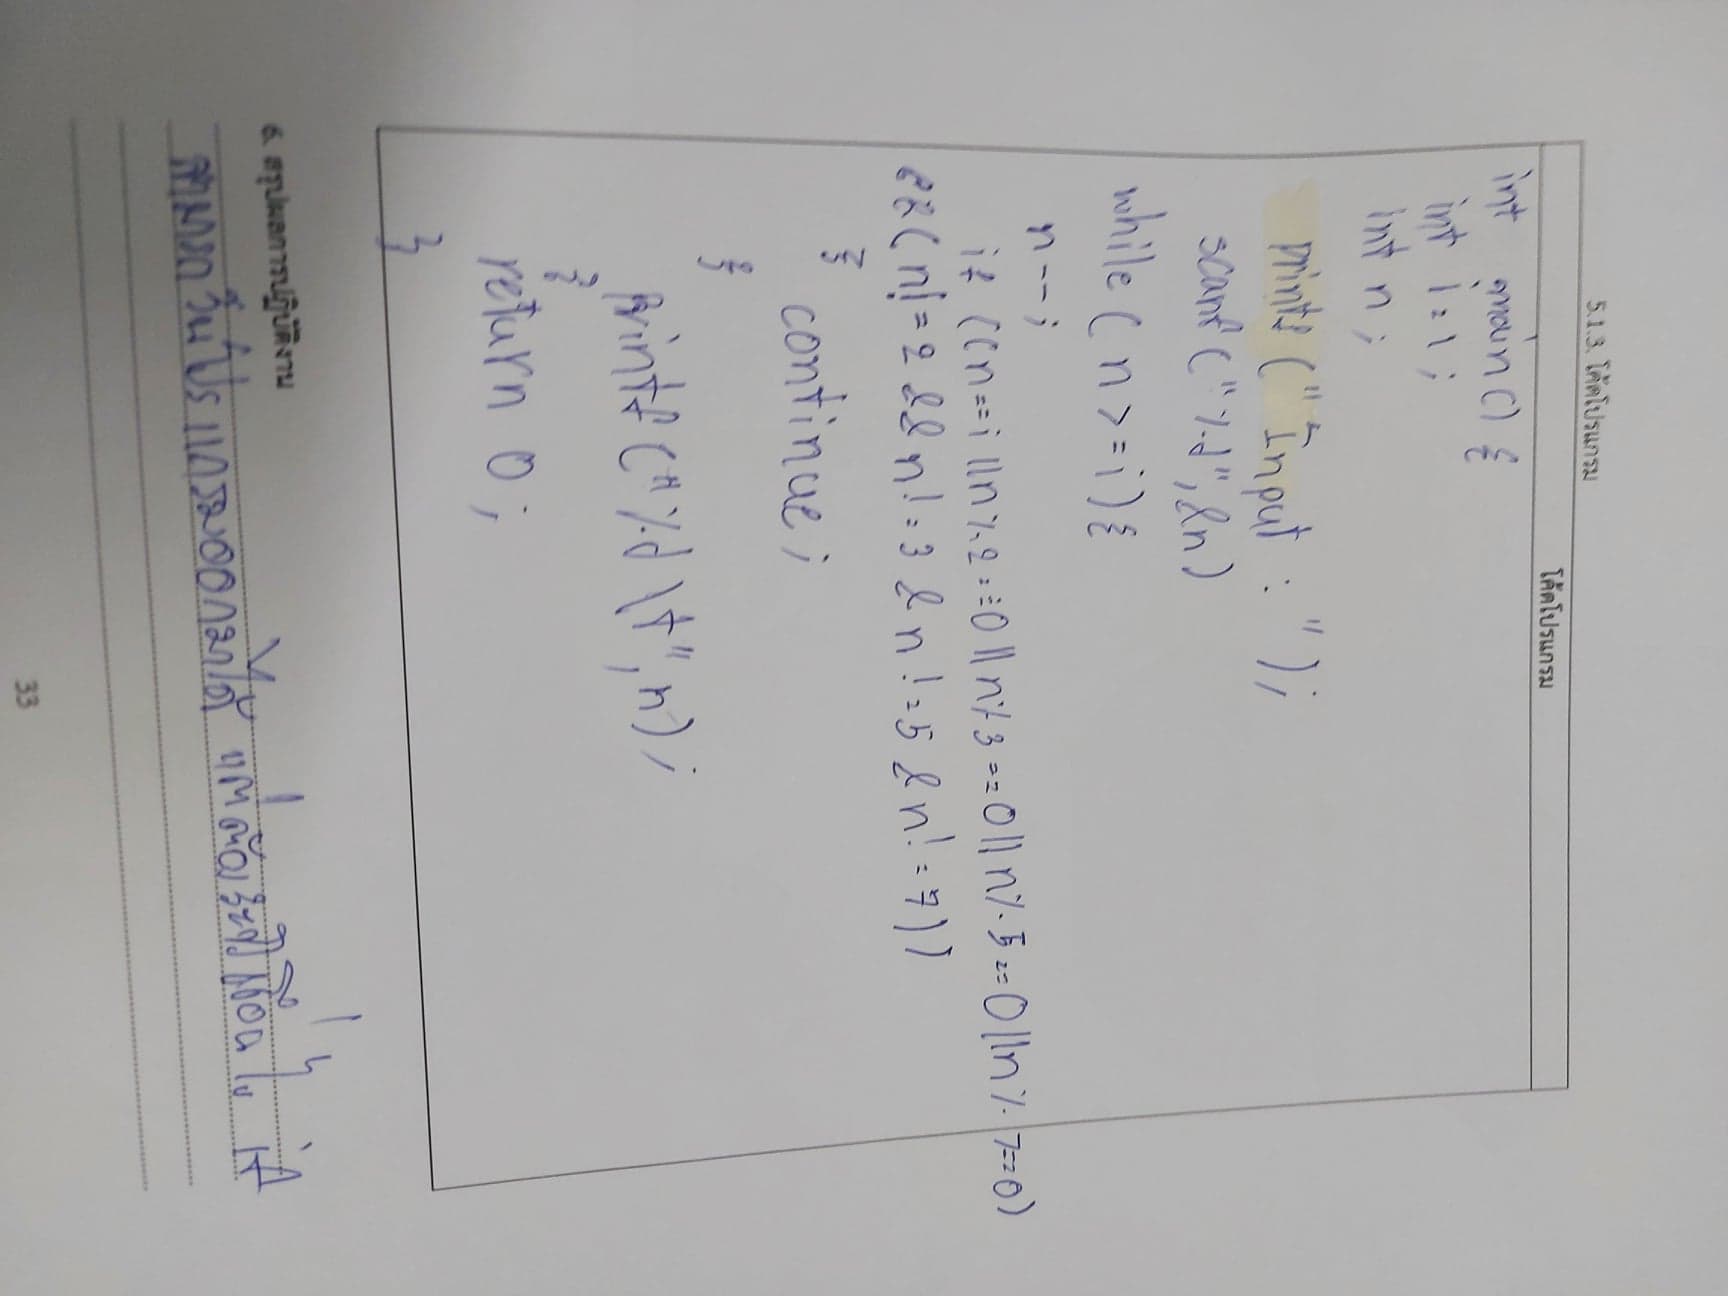 5.1.3. โค้ดโปรแกรม
โค้ดโปรแกรม
int main() {
int i = 1 ;
int n ;
printf (" Input : ") ;
scanf ("%d", &n)
while ( n >= i ) {
n -- ;
if ((n == i || n % 2 == 0 || n % 3 == 0 || n % 5 == 0 || n % 7 == 0)
&& ( n != 2 && n != 3 & n != 5 & n != 7 ))
{
continue ;
}
printf ("%d \t", n) ;
}
return 0 ;
}
6. สรุปผลการปฏิบัติงาน
สามารถ โปรแกรมออกมาได้ แต่ต้อง
33